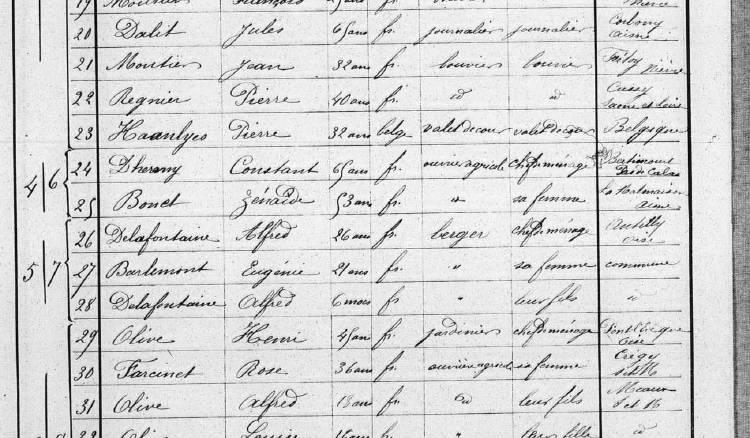 20 Dalit Jules 65 ans fr. journalier journalier Corbeny Aisne
21 Moutier Jean 32 ans fr. bouvier bouvier Nièvre
22 Regnier Pierre 40 ans fr. id id Cussy Saone et Loire
23 Haanlyes Pierre 32 ans belge valet de cour valet de cour Belgique
24 Dheremy Constant 65 ans fr. ouvrier agricole chef de ménage Bertincourt Pas de Calais
4 6
25 Bonet Zénaïde 53 ans fr. " sa femme Aisne
26 Delafontaine Alfred 26 ans fr. berger chef de ménage Autilly Oise
5 7 27 Barlemont Eugénie 21 ans fr. " sa femme commune
28 Delafontaine Alfred 6 mois fr. " leur fils id
29 Olive Henri 45 ans fr. jardinier chef de ménage Pont l'évêque Oise
30 Farcinet Rose 36 ans fr. ouvrière agricole sa femme Crégy S et M
31 Olive Alfred 18 ans fr. id leur fils Meaux S et M
Louis 16 ans fr. " leur fille id